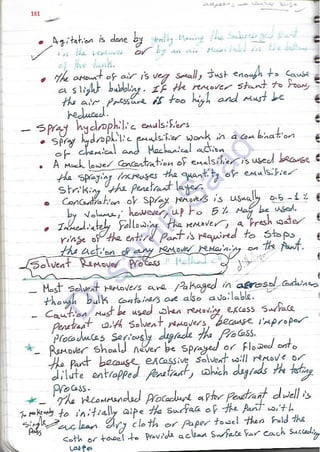 181
• Agitation is done by gently Moving the submerged part
in the remover or by an air Manifold in the bottom
of the tank.
• the amount of air is very small, Just enough to Cause
a slight bubbling. If the remover start to foam,
the air pressure is too high and must be
reduced.
- Spray hydrophilic emulsifiers
• Spray hydrophilic emulsifier work in a combination
of chemical and Mechanical action
• A Much lower Concentration of emulsifier is used because
the spraying increases the quantity of emulsifier
Striking the Penetrant layer.
• Concentration of Spray removers is usually 0.5 - 1 %
by volume, however, up to 5 % May be used.
• Immediately following the remover, a fresh water
rinse of the entire Part is required to Stops
the action of any remover remaining on the part.
Solvent Remover Process " Method C
- Most Solvent removers are Pakaged in aerosol Containers
though bulk containers are also available.
- Caution Must be used when removing excess Surface
Penetrant with Solvent removers, because improper
procaduces Seriously degrade the Process.
* Remover Should never be sprayed or flowed onto
the Part because excessive Solvent will remove or
dilute entrapped Penetrant, which degrads the testing
Process.
* The recommended Procedure after Penetrant dwell is
to initially wipe the Surface of the Part with
a clean dry cloth or Paper towel then fold the
coth or towel to Provide a clean Surface for each Succeeding
wipe